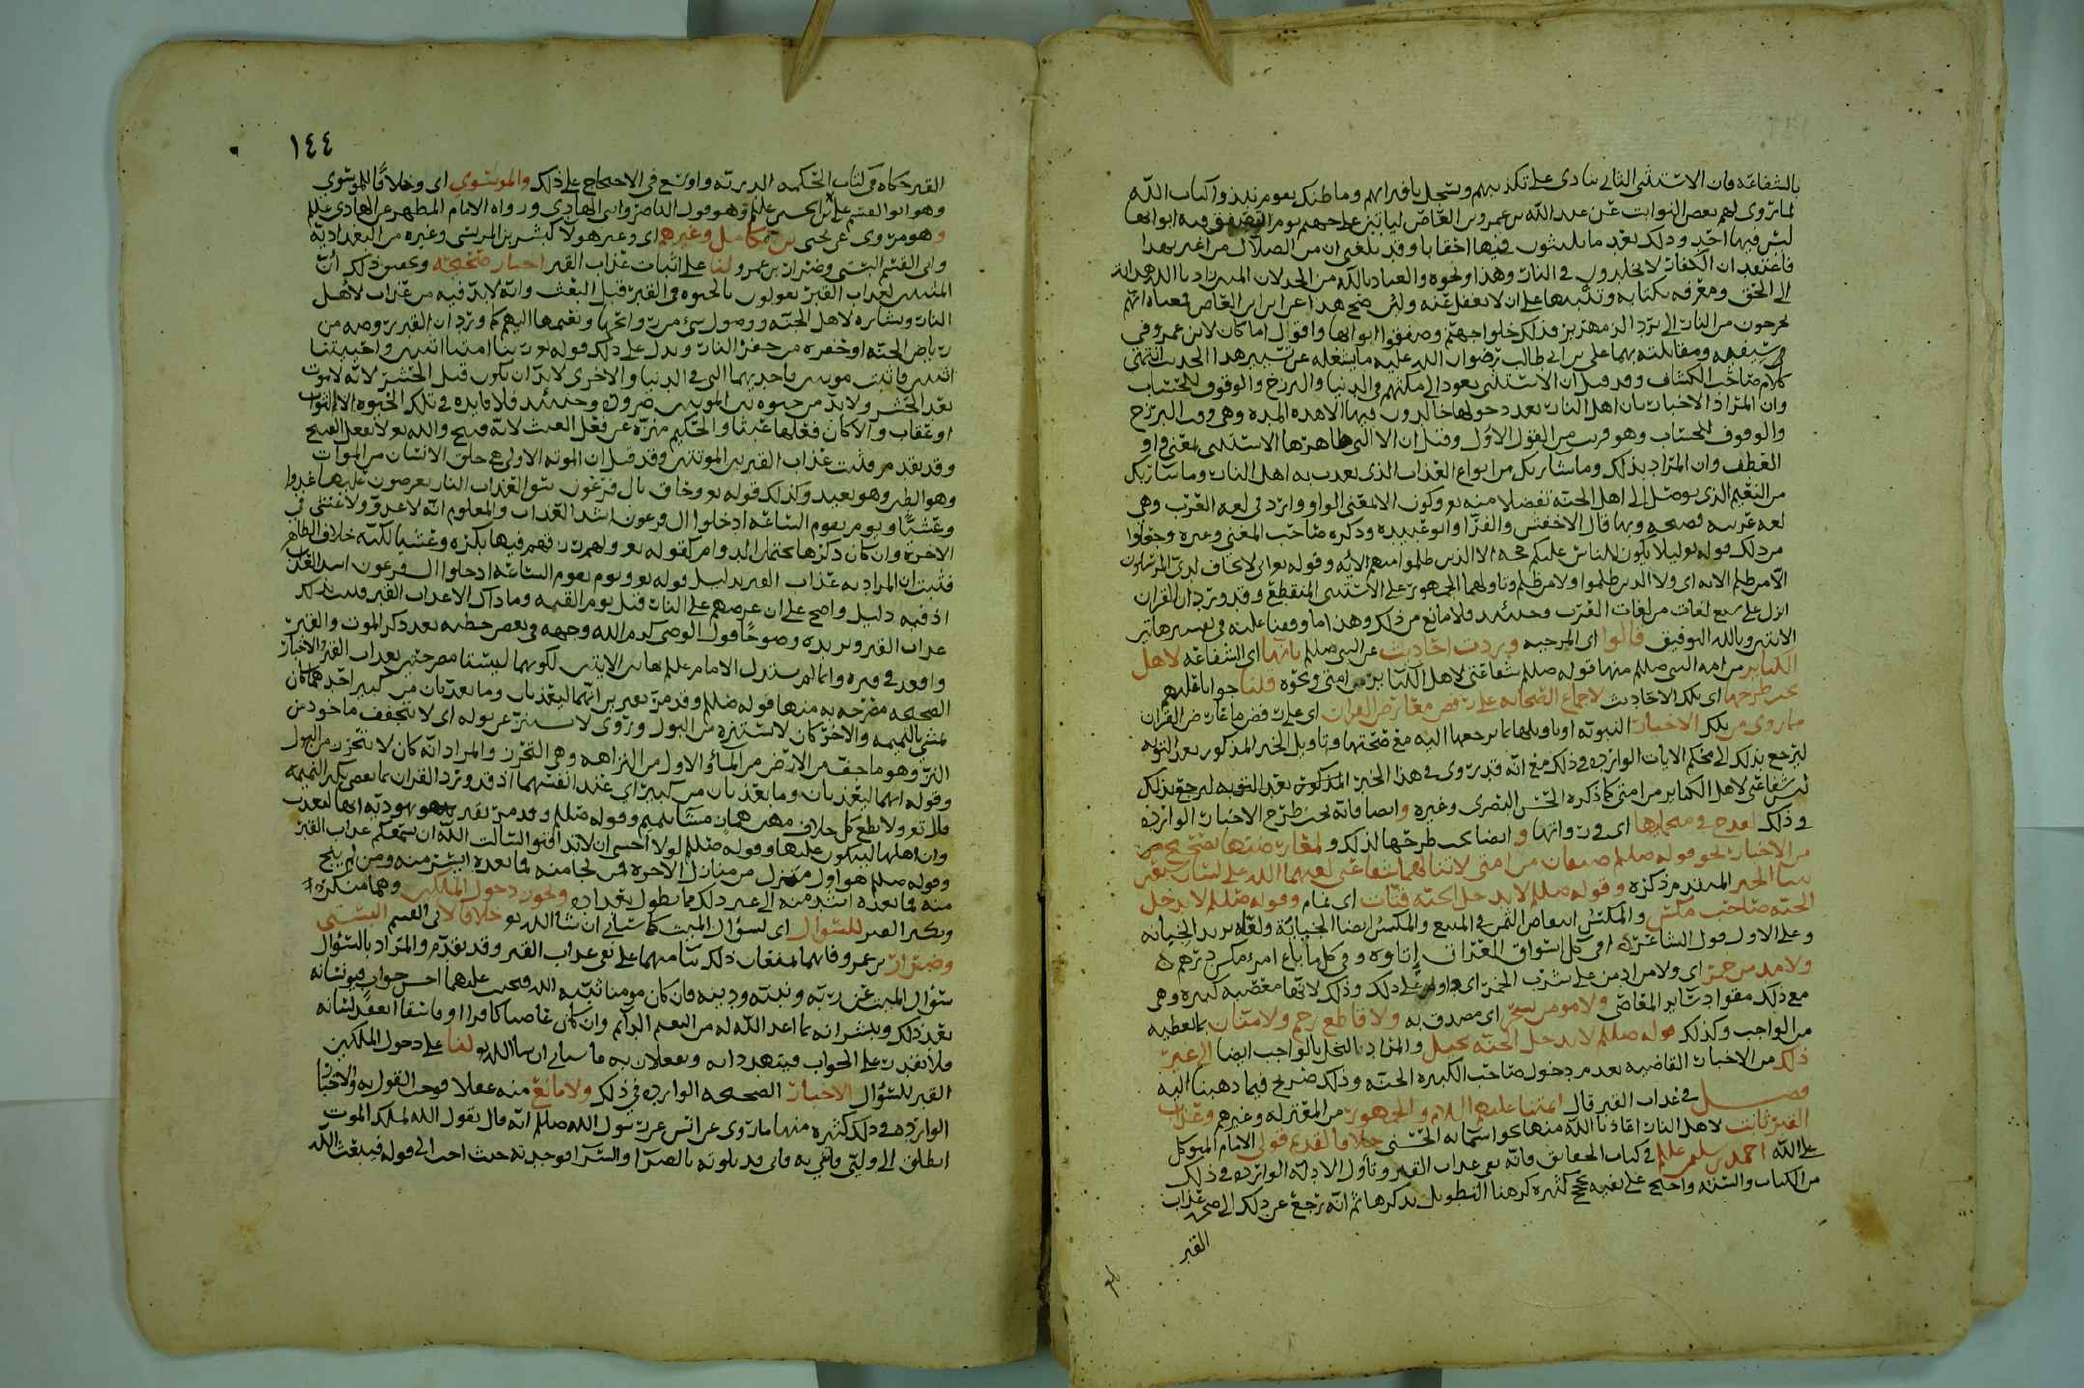 بالشفاعه فان الاستثنى الثانى ينادى على تكذيبهم ويسجل بافترائهم وما ظنك بقوم نبذوا كتاب الله
لما روى لهم بعض النوابت عن عبد الله بن عمرو بن العاص لياتين على جهنم يوم تصفق فيه ابوابها
ليس فيها احد وذلك بعد ما يلبثون فيها احقابا وقد بلغنى ان من الضلال من اغتر بهذا
فاعتقد ان الكفار لا يخلدون فى النار وهذا ونحوه والعياذ بالله من الخذلان المبين زادنا الله هدايه
الى الحق ومعرفه بكتابه وتنبيها على ان لا نغفل عنه ولئن صح هذا عن ابن العاص فمعناه انهم
يخرجون من النار الى برد الزمهرير فذلك خلو جهنم وصفق ابوابها واقول اما كان لابن عمرو فى
سيفيه ومقاتلته بهما على بن ابى طالب رضوان الله عليه ما يشغله عن تسيير هذا الحديث انتهى
كلام صاحب الكشاف وقد قيل ان الاستثنى يعود الى مكثهم فى الدنيا والبرزخ والوقوف للحساب
وان المراد الاخبار بان اهل النار بعد دخولها خالدون فيها الا هذه المده وهى وقت البرزخ
والوقوف للحساب وهو قريب من القول الاول وقيل ان الا التى ظاهرها الاستثنى بمعنى واو
العطف وان المراد بذلك وما شا ربك من انواع العذاب الذى يعذب به اهل النار وما شا ربك
من النعيم الذى يوصل الى اهل الجنه تفضلا منه تع وكون الا بمعنى الواو وارد فى لغه العرب وهى
لغه عربيه فصيحه وبها قال الاخفش والفرا وابو عبيده وذكره صاحب المغنى وغيره وجعلوا
من ذلك قوله تع لئلا يكون للناس عليكم حجه الا الذين ظلموا منهم الايه وقوله تع انى لا يخاف لدى المرسلون
الا من ظلم الايه اى ولا الذين ظلموا ولا من ظلم وتاولهما الجمهور على الاستثنى المنقطع وقد ورد ان القران
انزل على سبع لغات من لغات العرب وحينئذ فلا مانع من ذلك وهذا ما وقفنا عليه فى تفسير هاتين
الايتين وبالله التوفيق قالوا اى المرجيه وردت احاديث عن النبى صللم بانها اى الشفاعه لاهل
الكبائر من امه النبى صللم منها قوله صللم شفاعتى لاهل الكبائر من امتى ونحوه قلنا جوابا عليهم
يجب طرحها اى تلك الاحاديث لاجماع الصحابه على رفض معارض القران اى على رفض ما عارض القران
مما روى من تلك الاخبار النبويه او تاويلها بما يرجعها اليه مع صحتها وتاويل الخبر المذكور بعد التوبه
ليرجع بذلك الى محكم الايات الوارده فى ذلك مع انه قد روى فى هذا الخبر المذكور بعد التوبه ليرجع بذلك
ليس شفاعتى لاهل الكبائر من امتى كما ذكره الحسن البصرى وغيره وايضا فانه يجب طرح الاخبار الوارده
فى ذلك لقدح فى متحليها اى فى رواتها وايضا يجب طرحها لذلك ولمعارضتها بصحيح من
من الاخبار نحو قوله صللم صنفان من امتى لا تنالهما شفاعتى لعنهما الله على لسان سبعين
نبيا الخبر المتقدم ذكره وقوله صللم لا يدخل الجنه قتات اى نمام وقوله صللم لا يدخل
الجنه صاحب مكس والمكس انتقاص الثمن فى المبيع والمكس ايضا الجبايه ولعله يريد الخيانه
وعلى الاول قول الشاعر افى كل اسواق العراق اتاوه وفى كل ما باع امرؤ مكس درهم
ولا مدمن خمر اى ولا مداوم من على شرب الخمر وذلك لانها معصيه كبيره وهى
مع ذلك مفتاح ساير المعاصى ولا مومن بسحر اى مصدق به ولا قاطع رحم ولا منان بما يعطيه
من الواجب وكذلك قوله صللم لا يدخل الجنه بخيل والمراد بالبخل بالواجب ايضا الى غير
ذلك من الاخبار القاضيه بعدم دخول صاحب الكبيره الجنه وذلك صريح فيما ذهبنا اليه
فصل فى عذاب القبر قال ايمتنا عليهم السلام والجمهور من المعتزله وغيرهم وعذاب
القبر ثابت لاهل النار اعاذنا الله منها بحق اسمايه الحسنى خلافا لقديم قولى الامام المتوكل
على الله احمد بن سليمن علم فى كتاب الحقائق فانه نفى عذاب القبر وتاول الادله الوارده فى ذلك
من الكتاب والسنه واحتج على نفيه بحجج كثيره كرهنا التطويل بذكرها ثم انه رجع عن ذلك الى صحه عذاب
القبر
١٤٤
القبر حكاه فى كتاب الحكمه الدريه واوسع فى الاحتجاج على ذلك والموسوى اى وخلافا للموسوى
وهو ابو القسم على بن الحسين علم وهو قول الناصر وابنى الهادى ورواه الامام المطهر عن الهادى علم
وهو مروى عن يحيى بن كامل وغيرهم اى وغير هولا كبشر المريسى وغيره من البغداديه
وابى القسم البستى وضرار بن عمرو لنا على اثبات عذاب القبر اخبار صحيحه وتحقيق ذلك ان
المثبتين لعذاب القبر يقولون بالحيوه فى القبر قبل البعث وانه لابد فيه من عذاب لاهل
النار وبشاره لاهل الجنه ووصول شى من روائحها ونعيمها اليهم كما ورد ان القبر روضه من
رياض الجنه او حفره من حفر النار ويدل على ذلك قوله تع ربنا امتنا اثنتين واحييتنا
اثنتين فاثبت موتتين فاحديهما التى فى الدنيا والاخرى لابد ان تكون قبل الحشر لانه لا موت
بعد الحشر ولابد من حيوه بين الموتتين ضروره وحينئذ فلا فايده فى تلك الحيوه الا الثواب
او عقاب والا كان فعلها عبثا والحكيم منزه عن فعل العبث لانه قبيح والله تع لا يفعل القبيح
وقد بعد من قلت عذاب القبر بين الموتتين وقد قيل ان الموته الاولى هى خلق الانسان من الموات
وهو الطين وهو بعيد وكذلك قوله تع وحاق بال فرعون سوء العذاب النار يعرضون عليها غدوا
وعشيا ويوم يقوم الساعه ادخلوا ال فرعون اشد العذاب والمعلوم انه لا غدو ولا عشى فى
الاخره وان كان ذكرها يحتمل الدوام كقوله تع ولهم رزقهم فيها بكره وعشيا لكنه خلاف الظاهر
فثبت ان المراد به عذاب القبر بدليل قوله تع ويوم يقوم الساعه ادخلوا ال فرعون اشد العذاب
اذ فيه دليل واضح على ان عرضهم على النار قبل يوم القيمه وما ذاك الا عذاب القبر فثبت بذلك
عذاب القبر ويزيده وضوحا قول الوصى كرم الله وجهه فى بعض خطبه بعد ذكر الموت والقبر
واقعد فى قبره وانما لم يستدل الامام علم بهاتين الايتين لكونهما ليستا مصرحتين بعذاب القبر والاخبار
الصحيحه مصرحه به منها قوله صللم وقد مر بقبرين انهما ليعذبان وما يعذبان من كبير احدهما كان
يمشى بالنميمه والاخر كان لا يستنزه من البول وروى لا يستنزر عن بوله اى لا يتجفف ماخوذ من
النز وهو ما جف من الارض من الما والاول من النزاهه وهى التحرز والمراد انه كان لا يتحرز من البول
وقوله انهما ليعذبان وما يعذبان من كبير اى عند انفسهما اذ قد ورد القران بما يقضى بكبر النميمه
قال تع ولا تطع كل حلاف مهين هماز مشا بنميم وقوله صللم وقد مر بقبر يهوديه انها لتعذب
وان اهلها ليبكون عليها وقوله صللم لولا اخشى ان لا تدافنوا لسالت الله ان يسمعكم عذاب القبر
وقوله صللم هو اول منزل من منازل الاخره فمن نجا منه فما بعده ايسر منه ومن لم ينج
منه فما بعده اشد منه الى غير ذلك مما يطول تعداده ويجوز دخول الملكين وهما منكر
ونكير القبر للسوال اى لسؤال الميت كما سياتى ان شا الله تع خلافا لابى القسم البستى
وضرار بن عمرو فانهما يمنعان ذلك بنا منهما على نفى عذاب القبر وقد تقدم والمراد بالسؤال
سؤال الميت عن ربه ونبيه ودينه فان كان مومنا ثبته الله فيجيب عليهما احسن جواب فيونسانه
بعد ذلك ويبشرانه بما اعد الله له من النعيم الدائم وان كان عاصيا كافرا او فاسقا انعقد لسانه
فلا يقدر على الجواب فيتهددانه ويفعلان به ما سياتى ان شا الله تع لنا على دخول الملكين
القبر للسؤال الاخبار الصحيحه الوارده فى ذلك ولا مانع منه عقلا فوجب القول به والاخبار
الوارده فى ذلك كثيره منها ما روى عن انس عن رسول الله صللم انه قال يقول الله لملك الموت
انطلق الى وليى فاتنى به فانى قد بلوته بالضرا والسرا فوجدته حيث احب الى قوله فيبعث الله